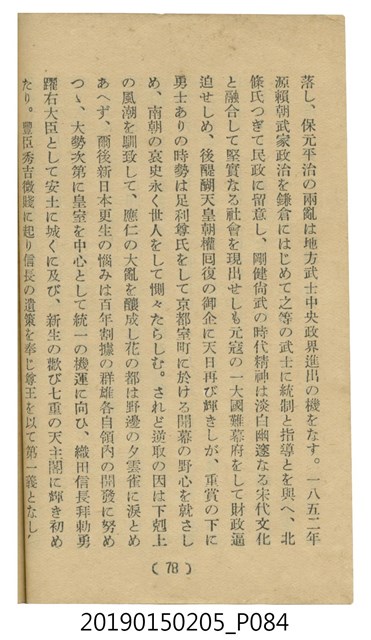 落し、保元平治の兩亂は地方武士中央政界進出の機をなす。一八五二年
源賴朝武家政治を鎌倉にはじめて之等の武士に統制と指導とを與へ、北
條氏つぎて民政に留意し、剛健尙武の時代精神は淡白幽邃なる宋代文化
と融合して堅實なる社會を現出せしも元寇の一大國難幕府をして財政逼
迫せしめ、後醍醐天皇朝權囘復の御企に天日再び輝きしが、重賞の下に
勇士ありの時勢は足利尊氏をして京都室町に於ける開幕の野心を戢さし
め、南朝の哀史永く世人をして惻々たらしむ。されど逆取の因は下剋上
の風潮を馴致して、應仁の大亂を釀成し花の都は野邊の夕雲雀に淚とめ
あへず、爾後新日本更生の惱みは百年割據の群雄各自領內の開發に努め
つゝ、大勢次第に皇室を中心として統一の機運に向ひ、織田信長拜勅勇
躍右大臣として安土に城くに及び、新生の歡び七重の天主閣に輝き初め
たり。豐臣秀吉微賤に起り信長の遺策を奉じ尊王を以て第一義となし
(78)
20190150205_P084